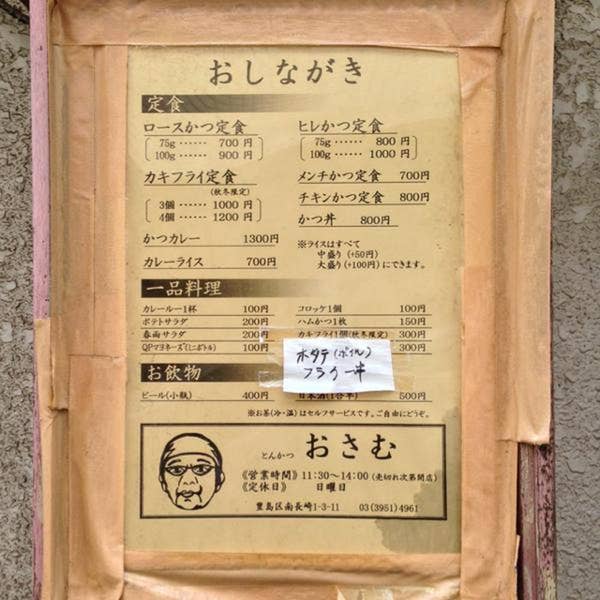 おしながき
定食
ロースかつ定食
75g ‥‥‥ 700 円
100g ‥‥‥ 900 円
ヒレかつ定食
75g ‥‥‥ 800 円
100g ‥‥‥ 1000 円
カキフライ定食
(秋冬限定)
3個 ‥‥‥ 1000 円
4個 ‥‥‥ 1200 円
メンチかつ定食 700円
チキンかつ定食 800円
かつ丼 800円
かつカレー 1300円
カレーライス 700円
※ライスはすべて
中盛り (+50円)
大盛り (+100円) にできます。
一品料理
カレールー1杯 100円
ポテトサラダ 200円
春雨サラダ 200円
QPマヨネーズ(ミニボトル) 100円
コロッケ1個 100円
ハムかつ1枚 150円
カキフライ1個(秋冬限定) 300円
300円
ホタテ(ボイル)
フライ
お飲物
ビール(小瓶) 400円
日本酒(1合半) 500円
※お茶(冷・温)はセルフサービスです。ご自由にどうぞ。
とんかつ おさむ
《営業時間》 11:30～14:00 (売切れ次第閉店)
《定休日》 日曜日
豊島区南長崎1-3-11 03(3951)4961